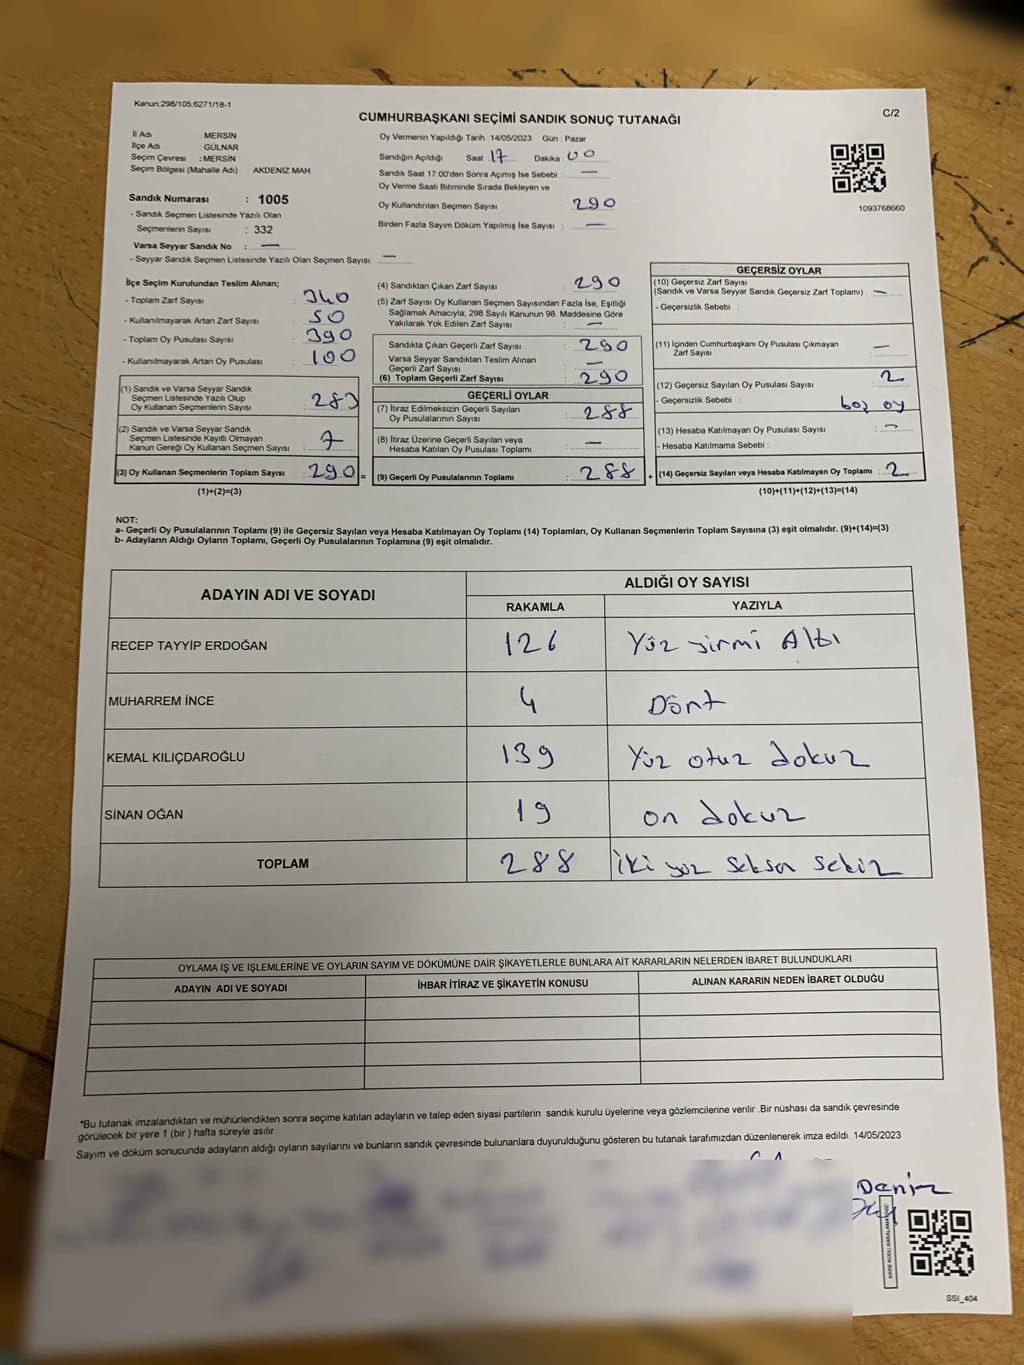 Kanun:298/105;6271/18-1
CUMHURBAŞKANI SEÇİMİ SANDIK SONUÇ TUTANAĞI
C/2
İl Adı : MERSİN
İlçe Adı : GÜLNAR
Seçim Çevresi : MERSİN
Seçim Bölgesi (Mahalle Adı) : AKDENİZ MAH.
Sandık Numarası : 1005
- Sandık Seçmen Listesinde Yazılı Olan
Seçmenlerin Sayısı : 332
Varsa Seyyar Sandık No : —
- Seyyar Sandık Seçmen Listesinde Yazılı Olan Seçmen Sayısı: —
Oy Vermenin Yapıldığı Tarih : 14/05/2023 Gün : Pazar
Sandığın Açıldığı Saat : 17 Dakika : 00
Sandık Saat 17.00'den Sonra Açımış İse Sebebi : —
Oy Verme Saati Bitiminde Sırada Bekleyen ve
Oy Kullandırılan Seçmen Sayısı : 290
Birden Fazla Sayım Döküm Yapılmış İse Sayısı : —
1093768660
İlçe Seçim Kurulundan Teslim Alınan;
- Toplam Zarf Sayısı : 340
- Kullanılmayarak Artan Zarf Sayısı : 50
- Toplam Oy Pusulası Sayısı : 390
- Kullanılmayarak Artan Oy Pusulası : 100
(1) Sandık ve Varsa Seyyar Sandık
Seçmen Listesinde Yazılı Olup
Oy Kullanan Seçmenlerin Sayısı : 283
(2) Sandık ve Varsa Seyyar Sandık
Seçmen Listesinde Kayıtlı Olmayan
Kanun Gereği Oy Kullanan Seçmen Sayısı : 7
(3) Oy Kullanan Seçmenlerin Toplam Sayısı : 290 =
(1)+(2)=(3)
(4) Sandıktan Çıkan Zarf Sayısı : 290
(5) Zarf Sayısı Oy Kullanan Seçmen Sayısından Fazla İse, Eşitliği
Sağlamak Amacıyla, 298 Sayılı Kanunun 98. Maddesine Göre
Yakılarak Yok Edilen Zarf Sayısı : —
Sandıkta Çıkan Geçerli Zarf Sayısı : 290
Varsa Seyyar Sandıktan Teslim Alınan
Geçerli Zarf Sayısı : —
(6) Toplam Geçerli Zarf Sayısı : 290
GEÇERLİ OYLAR
(7) İtiraz Edilmeksizin Geçerli Sayılan
Oy Pusulalarının Sayısı : 288
(8) İtiraz Üzerine Geçerli Sayılan veya
Hesaba Katılan Oy Pusulası Toplamı : —
(9) Geçerli Oy Pusulalarının Toplamı : 288 +
GEÇERSİZ OYLAR
(10) Geçersiz Zarf Sayısı
(Sandık ve Varsa Seyyar Sandık Geçersiz Zarf Toplamı) : —
- Geçersizlik Sebebi :
(11) İçinden Cumhurbaşkanı Oy Pusulası Çıkmayan
Zarf Sayısı : —
(12) Geçersiz Sayılan Oy Pusulası Sayısı : 2
- Geçersizlik Sebebi : boş oy
(13) Hesaba Katılmayan Oy Pusulası Sayısı : —
- Hesaba Katılmama Sebebi :
(14) Geçersiz Sayılan veya Hesaba Katılmayan Oy Toplamı : 2
(10)+(11)+(12)+(13)=(14)
NOT:
a- Geçerli Oy Pusulalarının Toplamı (9) ile Geçersiz Sayılan veya Hesaba Katılmayan Oy Toplamı (14) Toplamları, Oy Kullanan Seçmenlerin Toplam Sayısına (3) eşit olmalıdır. (9)+(14)=(3)
b- Adayların Aldığı Oyların Toplamı, Geçerli Oy Pusulalarının Toplamına (9) eşit olmalıdır.
ADAYIN ADI VE SOYADI
ALDIĞI OY SAYISI
RAKAMLA YAZIYLA
RECEP TAYYİP ERDOĞAN 126 Yüz yirmi Altı
MUHARREM İNCE 4 Dört
KEMAL KILIÇDAROĞLU 139 Yüz otuz dokuz
SİNAN OĞAN 19 on dokuz
TOPLAM 288 İki yüz seksen sekiz
OYLAMA İŞ VE İŞLEMLERİNE VE OYLARIN SAYIM VE DÖKÜMÜNE DAİR ŞİKAYETLERLE BUNLARA AİT KARARLARIN NELERDEN İBARET BULUNDUKLARI
ADAYIN ADI VE SOYADI İHBAR İTİRAZ VE ŞİKAYETİN KONUSU ALINAN KARARIN NEDEN İBARET OLDUĞU
*Bu tutanak imzalandıktan ve mühürlendikten sonra seçime katılan adayların ve talep eden siyasi partilerin sandık kurulu üyelerine veya gözlemcilerine verilir .Bir nüshası da sandık çevresinde
görülecek bir yere 1 (bir ) hafta süreyle asılır.
Sayım ve döküm sonucunda adayların aldığı oyların sayılarını ve bunların sandık çevresinde bulunanlara duyurulduğunu gösteren bu tutanak tarafımızdan düzenlenerek imza edildi. 14/05/2023
Deniz
KARE KODU KARALAMAYINIZ
SSI_404